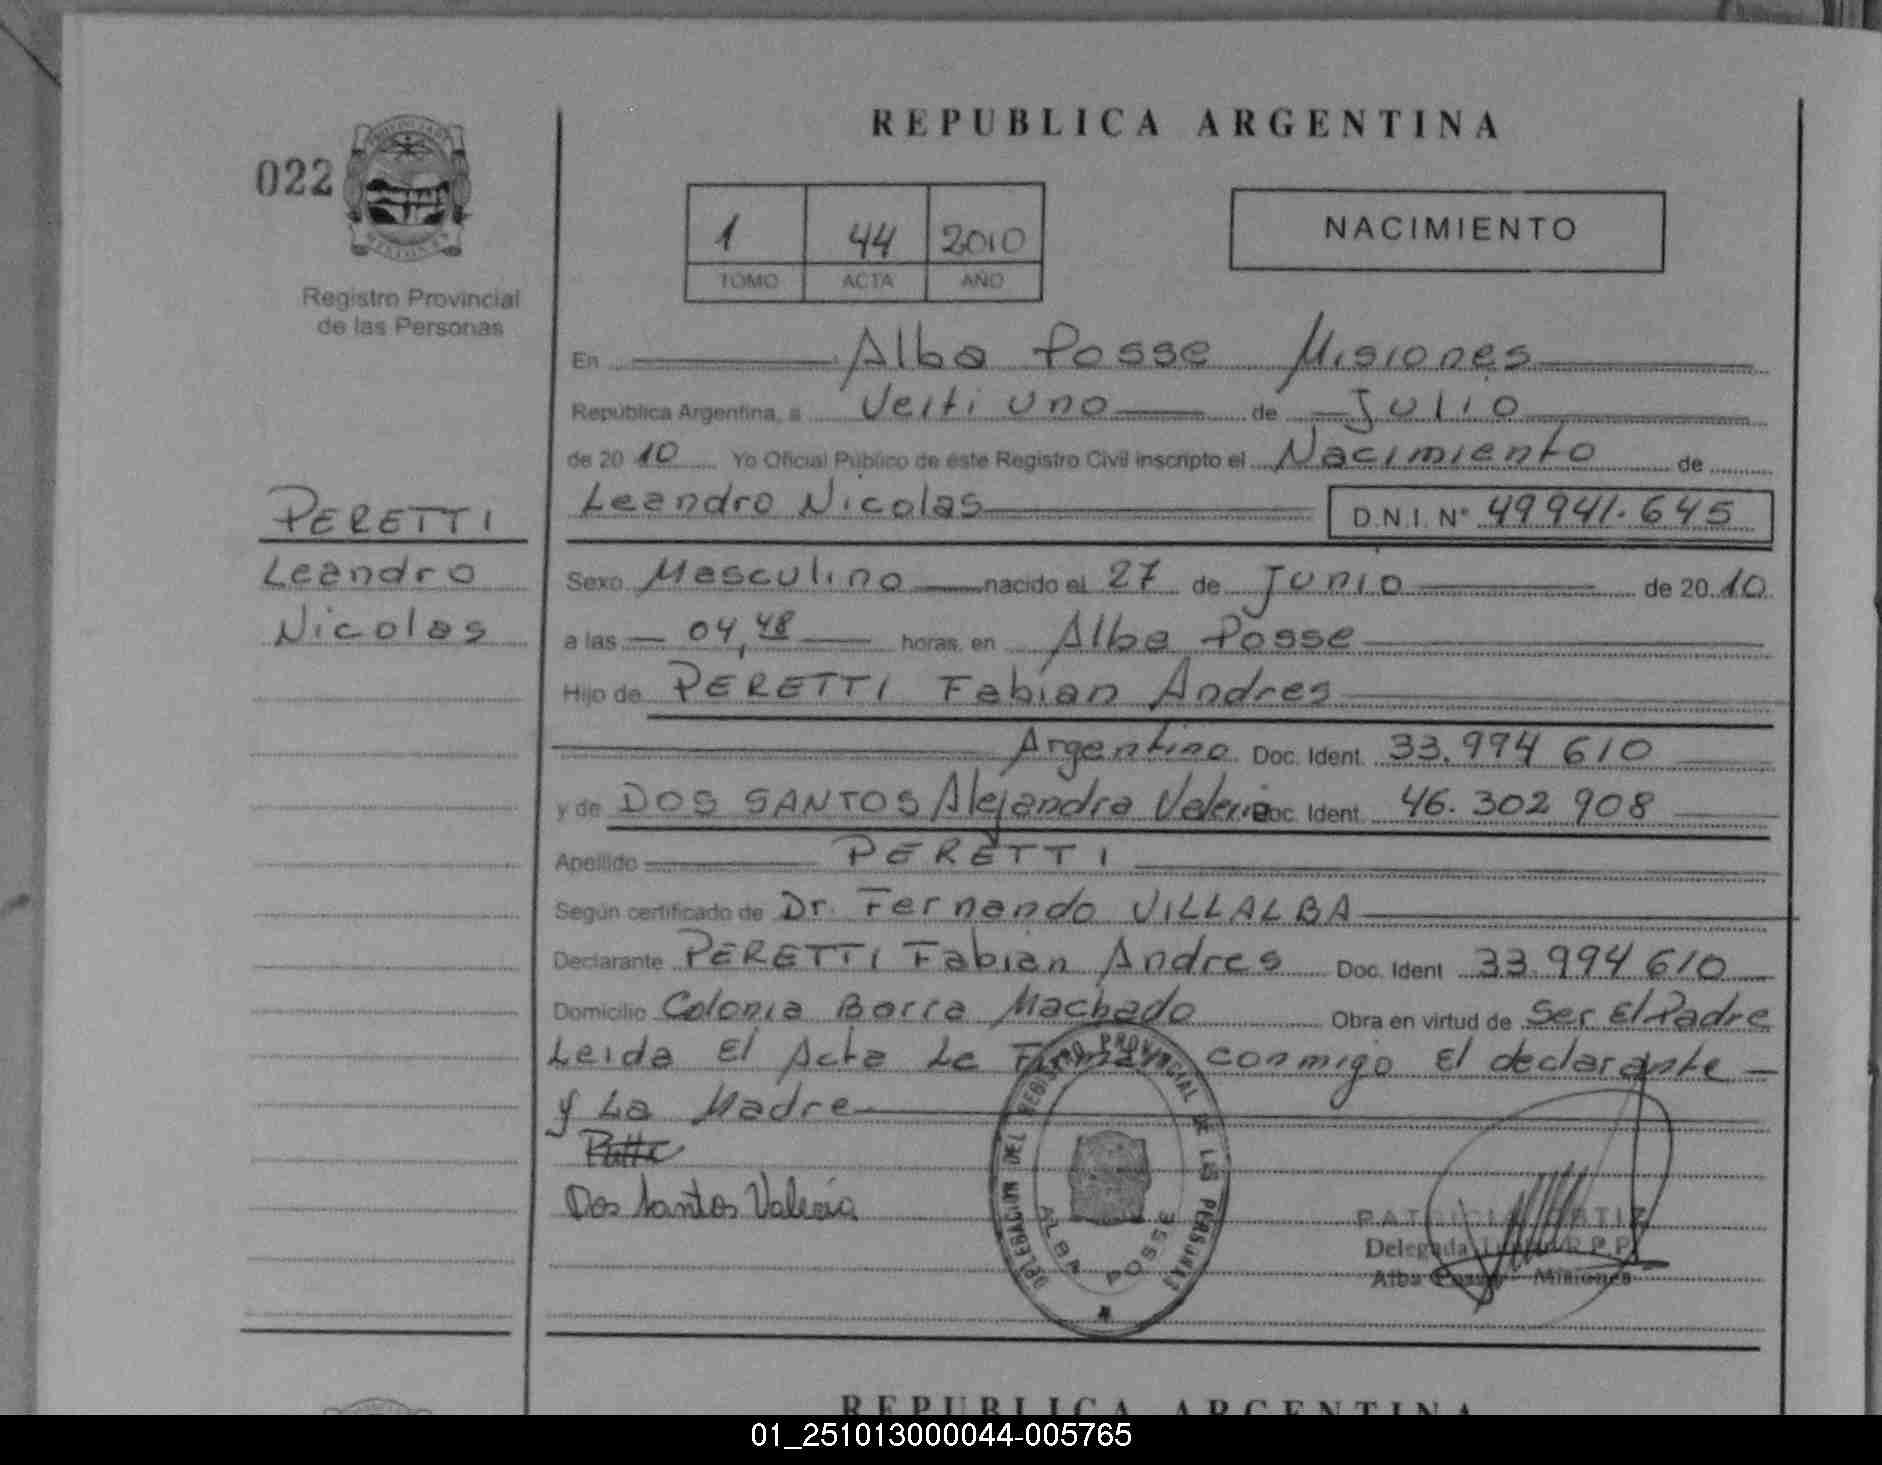 REPUBLICA ARGENTINA
022
PROVINCIA DE MISIONES
Registro Provincial
de las Personas
1 44 2010
TOMO ACTA AÑO
NACIMIENTO
En Alba Posse Misiones
República Argentina, a Veiti uno de Julio
de 2010 Yo Oficial Público de éste Registro Civil inscripto el Nacimiento de
Leandro Nicolas D.N.I. N° 49941.645
PERETTI
Leandro
Nicolas
Sexo Masculino nacido el 27 de Junio de 2010
a las 04,48 horas, en Alba Posse
Hijo de PERETTI Fabian Andres
Argentino Doc. Ident. 33.994 610
y de DOS SANTOS Alejandra Valeria Doc. Ident. 46.302 908
Apellido PERETTI
Según certificado de Dr. Fernando VILLALBA
Declarante PERETTI Fabian Andres Doc. Ident 33.994 610
Domicilio Colonia Barra Machado Obra en virtud de Ser El Padre
Leida El Acta Le Firman conmigo El declarante
y La Madre
Dos Santos Valeria
DELEGACION DEL REGISTRO PROVINCIAL DE LAS PERSONAS
ALBA POSSE
PATRICIA ORTIZ
Delegada Titular R.P.P.
Alba Posse - Misiones
REPUBLICA ARGENTINA
01_251013000044-005765